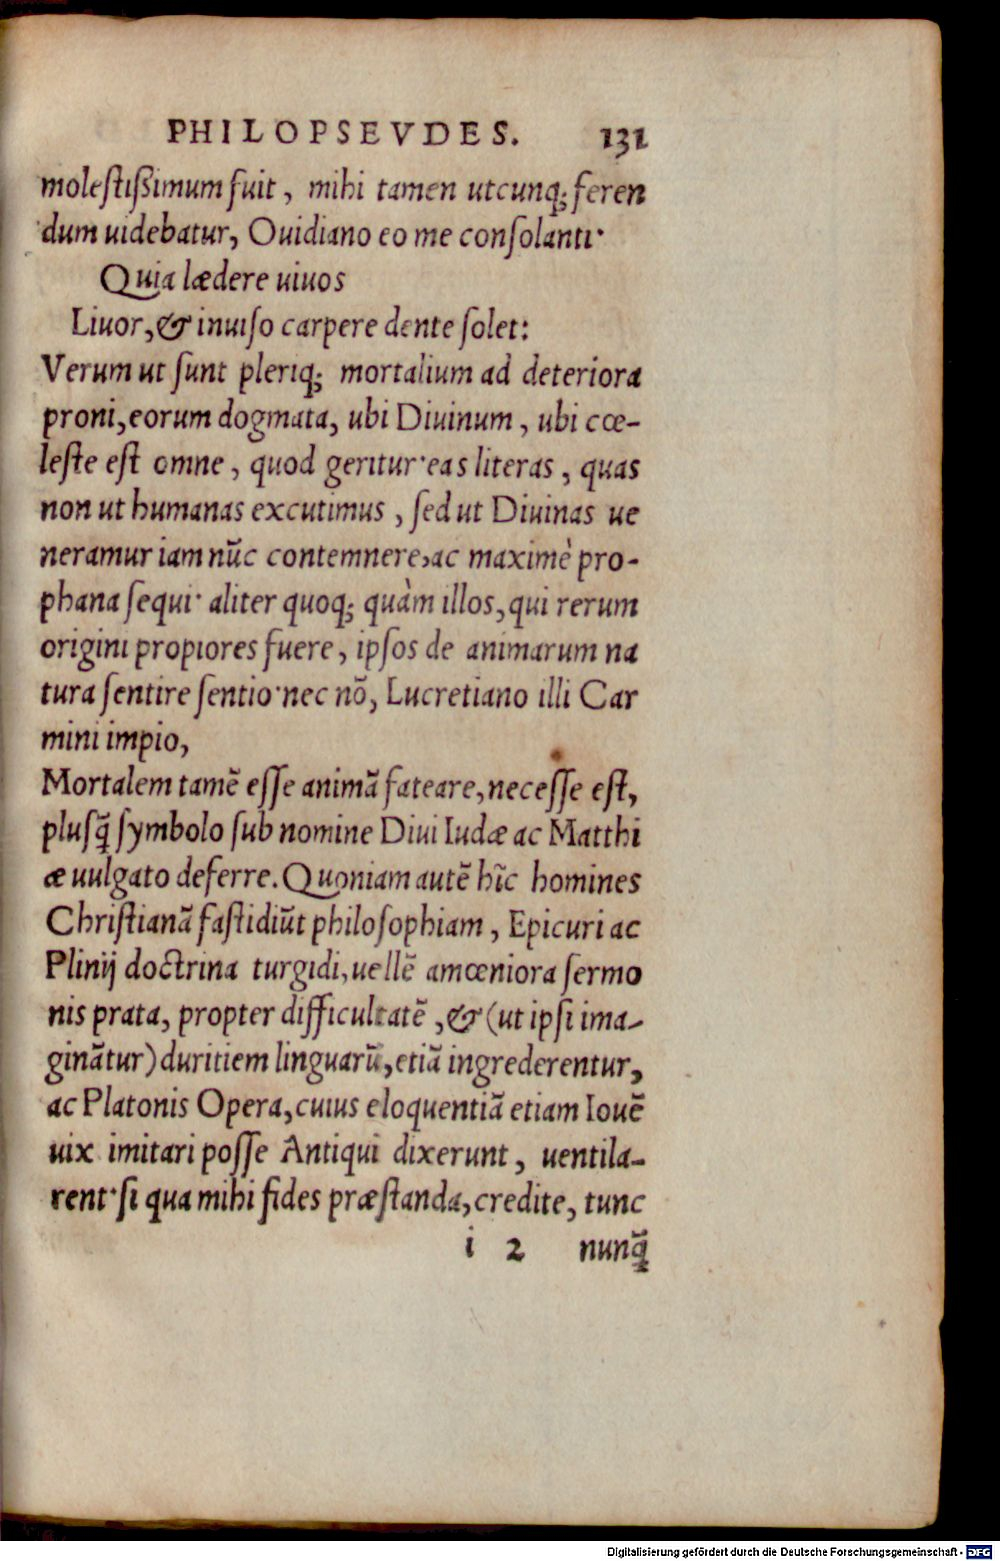 PHILOPSEVDES. 131
molestißimum fuit, mihi tamen utcunq; feren
dum uidebatur, Ouidiano eo me consolanti·
Quia lædere uiuos
Liuor, & inuiso carpere dente solet:
Verum ut sunt pleriq; mortalium ad deteriora
proni, eorum dogmata, ubi Diuinum, ubi cœ-
leste est omne, quod geritur· eas literas, quas
non ut humanas excutimus, sed ut Diuinas ue
neramur iam nūc contemnere, ac maximè pro-
phana sequi· aliter quoq; quàm illos, qui rerum
origini propiores fuere, ipsos de animarum na
tura sentire sentio· nec nō, Lucretiano illi Car
mini impio,
Mortalem tamē esse animā fateare, necesse est,
plusq̃ symbolo sub nomine Diui Iudæ ac Matthi
æ uulgato deferre. Quoniam autē hīc homines
Christianā fastidiūt philosophiam, Epicuri ac
Plinij doctrina turgidi, uellē amœniora sermo
nis prata, propter difficultatē, & (ut ipsi ima-
ginātur) duritiem linguarū, etiā ingrederentur,
ac Platonis Opera, cuius eloquentiā etiam Iouē
uix imitari posse Antiqui dixerunt, uentila-
rent· si qua mihi fides præstanda, credite, tunc
i 2 nunq̃
Digitalisierung gefördert durch die Deutsche Forschungsgemeinschaft - DFG